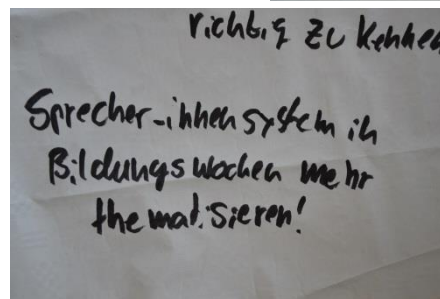 richtig zu kennen
Sprecher-innensystem in
Bildungswochen mehr
thematisieren!